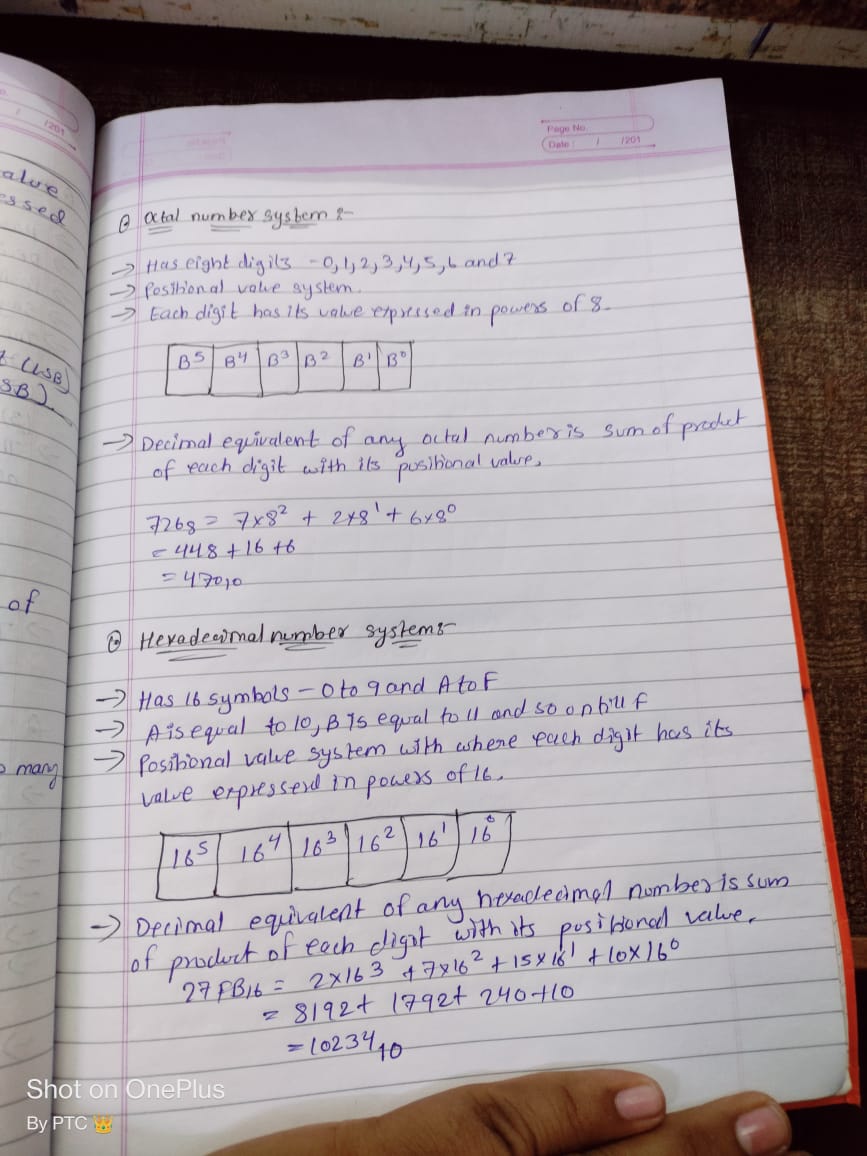 /201
alue
essed
t (LSB)
SB).
of
many
Page No.
Date : / /201
Octal number system :-
→ Has eight digits - 0, 1, 2, 3, 4, 5, 6 and 7
→ Positional value system.
→ Each digit has its value expressed in powers of 8.
B⁵ B⁴ B³ B² B¹ B⁰
→ Decimal equivalent of any octal number is sum of product
of each digit with its positional value.
726₈ = 7×8² + 2×8¹ + 6×8⁰
= 448 + 16 + 6
= 470₁₀
Hexadecimal number system :-
→ Has 16 symbols - 0 to 9 and A to F
→ A is equal to 10, B is equal to 11 and so on till F
→ Positional value system with where each digit has its
value expresserd in powers of 16.
16⁵ 16⁴ 16³ 16² 16¹ 16⁰
→ Decimal equivalent of any hexadecimal number is sum
of product of each digit with its positional value.
27FB₁₆ = 2×16³ + 7×16² + 15×16¹ + 10×16⁰
= 8192 + 1792 + 240 + 10
= 10234₁₀
Shot on OnePlus
By PTC 👑